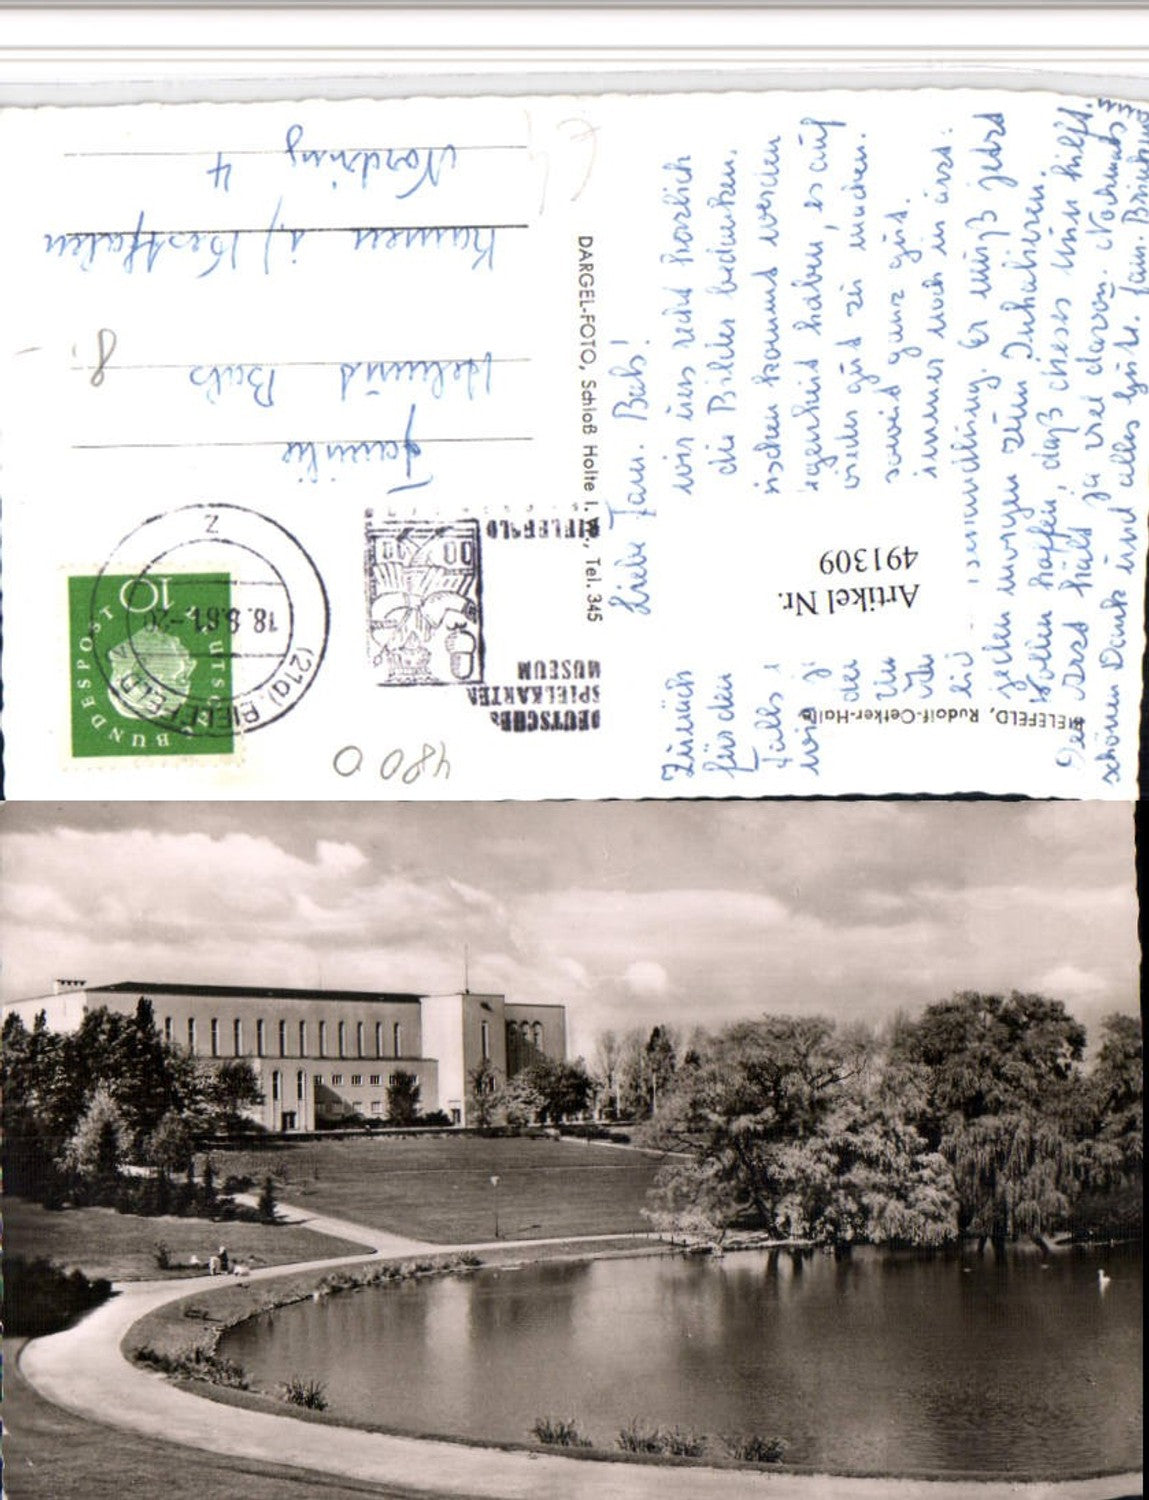 Liebe Fam. Bals!
Zunächst
wir uns recht herzlich
für den
die Bilder bedanken.
Falls
kommt werden
wir
haben, es auf
der
wieder gut zu machen.
soweit ganz gut.
immer noch in ärzt-
jeden morgen zum Inhalieren.
Wollen hoffen, daß dieses ihm hilft.
Der Arzt hält ja viel davon. Nochmals
schönen Dank und alles Gute. Fam.
Artikel Nr.
491309
BIELEFELD, Rudolf-Oetker-Halle
DARGEL-FOTO, Schloß Holte i. W., Tel. 345
DEUTSCHES
SPIELKARTEN
MUSEUM
BIELEFELD
(21a) BIELEFELD
18.8.61-20
Z
DEUTSCHE BUNDESPOST
10
4800
Familie
Helmut Bals
Kamen i./Westfalen
Nordring 4
8,-